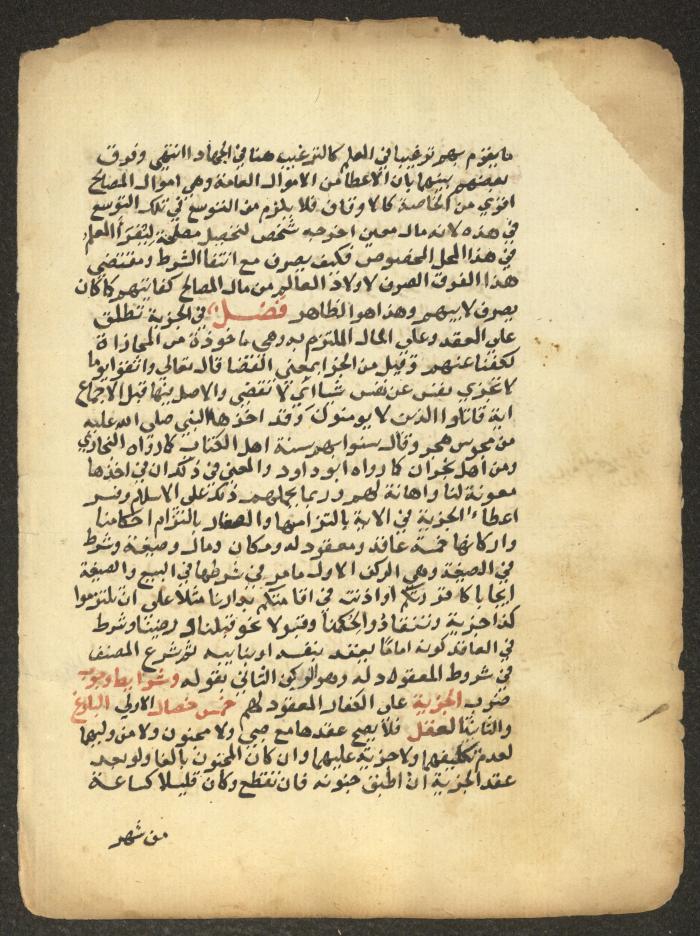 ما يقوم بهم ترغيبا في العلم كالترغيب هنا في الجهاد انتهى وفرق
بعضهم بينهما بان الاعطا من الاموال العامة وهي اموال المصالح
اقوي من الخاصة كالاوقاف فلا يلزم من التوسع في تلك التوسع
في هذه لانه مال معين اخرجه شخص لتحصيل مصلحة لتقرأ العلم
في هذا المحل المخصوص فكيف يصرف مع انتفا الشرط ومقتضي
هذا الفرق الصرف لاولاد العالم من مال المصالح كفايتهم كما كان
يصرف لابيهم وهذا هو الظاهر فصل في الجزية تطلق
علي العقد وعلي المال الملتزم به وهي ماخوذة من المجازاة
لكفنا عنهم وقيل من الجزا بمعني القضا قال تعالي واتقوا يوما
لا تجزي نفس عن نفس شيا اي لا تقضي والاصل فيها قبل الاجماع
اية قاتلوا الذين لا يومنون وقد اخذها النبي صلى الله عليه
من مجوس هجر وقال سنوا بهم سنة اهل الكتاب كما رواه البخاري
ومن اهل نجران كما رواه ابو داود والمعني في ذلك ان في اخذها
معونة لنا واهانة لهم وربما يحملهم ذلك علي الاسلام وفسر
اعطاء الجزية في الاية بالتزامها والصغار بالتزام احكامنا
واركانها خمسة عاقد ومعقود له ومكان ومال وصيغة وشرط
في الصيغة وهي الركن الاول ما مر في شرطها في البيع والصيغة
ايجابا كاقررتكم او اذنت في اقامتكم بدارنا مثلا علي ان تلتزموا
كذا جزية وتنقادوا لحكمنا وقبولا نحو قبلنا ورضينا وشرط
في العاقد كونه اماما يعقد بنفسه او بنايبه ثم شرع المصنف
في شروط المعقود له وهو الركن الثاني بقوله وشرايط وجوب
ضرب الجزية علي الكفار المعقود لهم خمس خصال الاولي البلوغ
والثانية العقل فلا يصح عقدها مع صبي ولا مجنون ولا من وليهما
لعدم تكليفهما ولا جزية عليهما وان كان المجنون بالغا ولو بعد
عقد الجزية ان اطبق جنونه فان تقطع وكان قليلا كساعة
من شهر